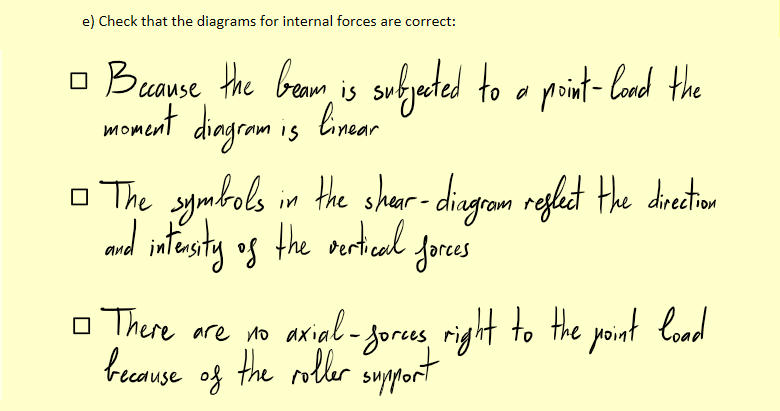 e) Check that the diagrams for internal forces are correct:
Because the beam is subjected to a point-load the
moment diagram is linear
The symbols in the shear-diagram reflect the direction
and intensity of the vertical forces
There are no axial-forces right to the point load
because of the roller support